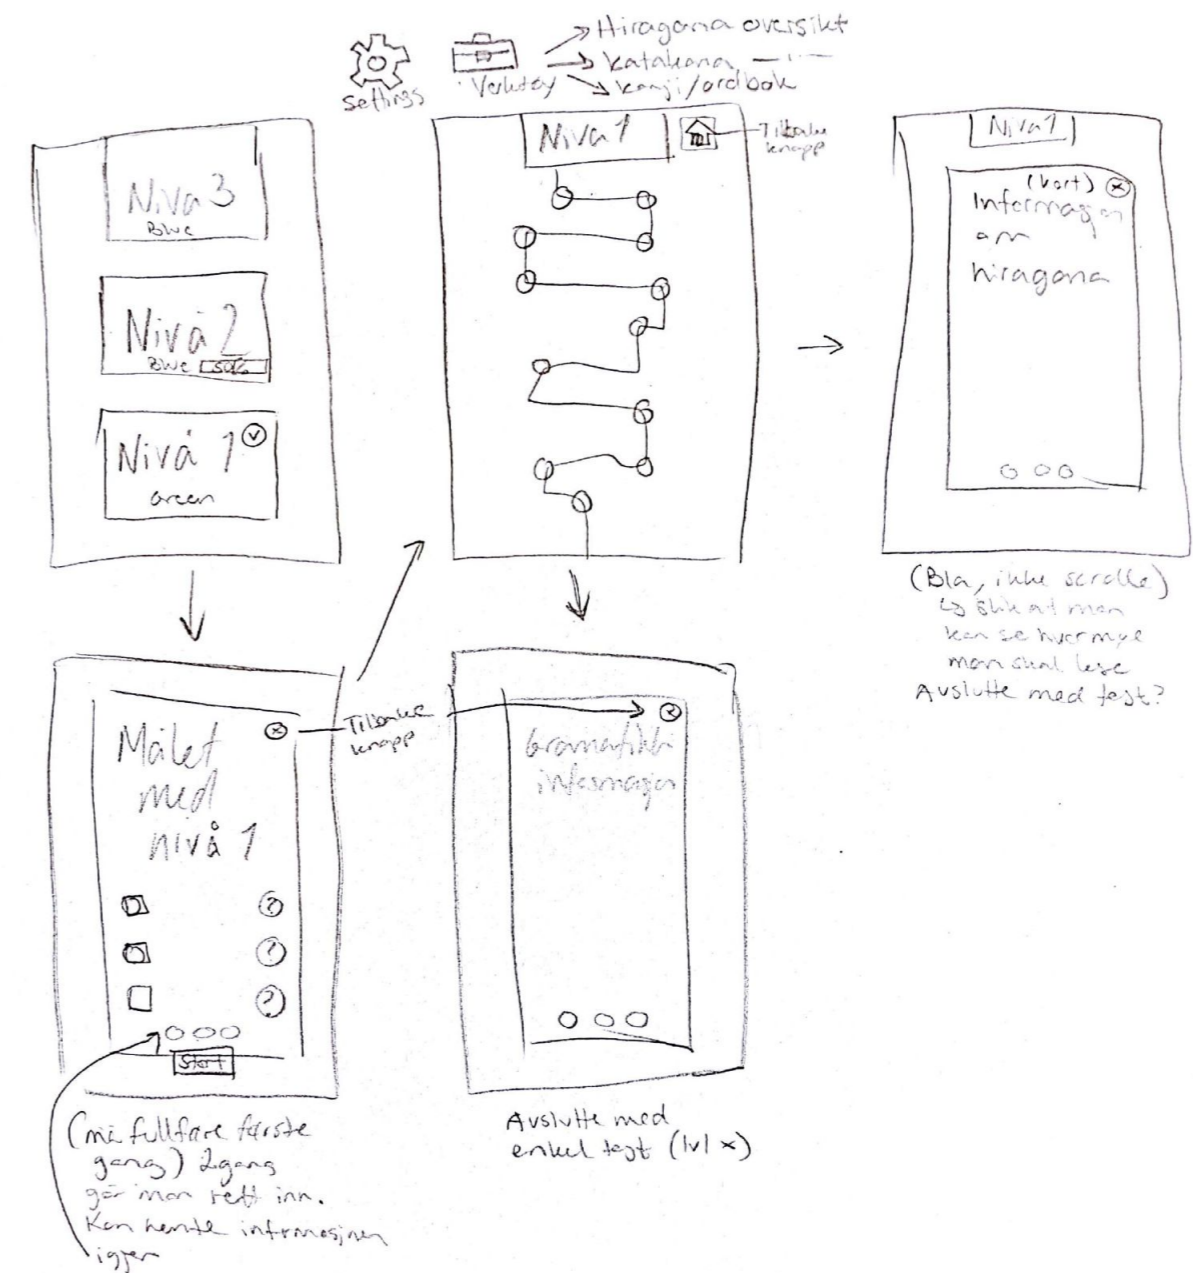 settings
Verktøy
Hiragana oversikt
Katakana — " —
kanji/ordbok
Nivå 3
Blue
Nivå 2
Blue 50%
Nivå 1
Green
Nivå 1
Tilbake
knapp
Nivå 1
(kort)
Informasjon
om
hiragana
(Bla, ikke scrolle)
slik at man
kan se hvor mye
man skal lese
Avslutte med test?
Målet
med
nivå 1
?
?
?
Start
Tilbake
knapp
(må fullføre første
gang) 2gang
går man rett inn.
Kan hente informasjonen
igjen
Gramatikk
informasjon
Avslutte med
enkel (lvl x)